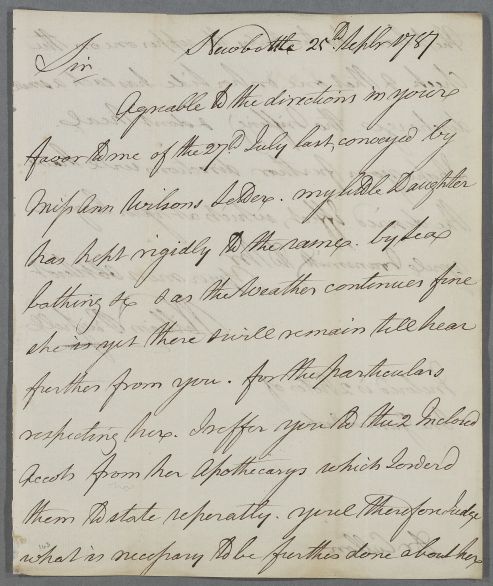 Newbottle 25th Septr 1787
Sir
Agreable to the directions in your
favor to me of the 27th July last, conveyed by
Miss Ann Wilsons Letter. my little Daughter
has kept rigidly to the same. by Sea
bathing &c & as the Weather continues fine
she is yet there & will remain till hear
further from you. for the particulars
respecting her. I reffer you to the 2 Inclosed
Accots from her Apothecarys which I order'd
them to state seperatly. youl Therefore Judge
what is necessary to be further done about her